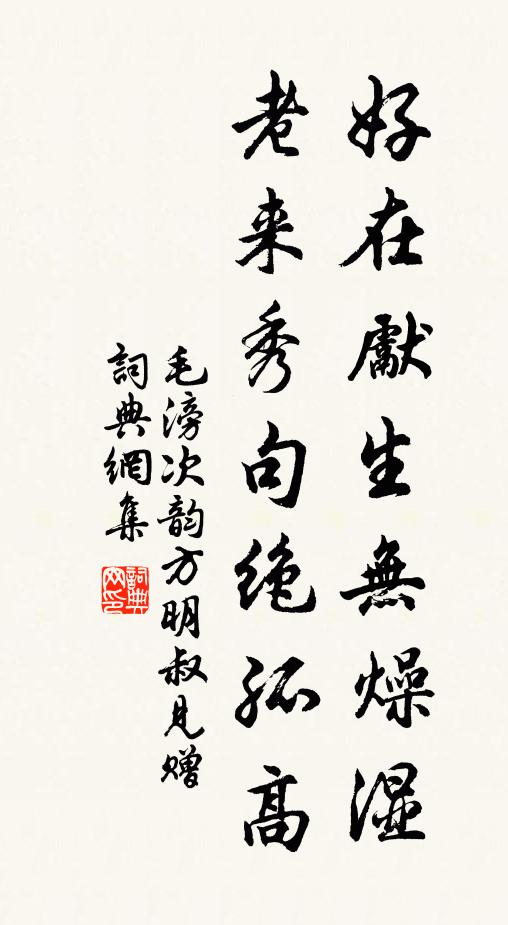 好在獻生無燥湿
老来秀句绝孤高
毛滂次韵方明叔見赠
詞典網集
詞典網印